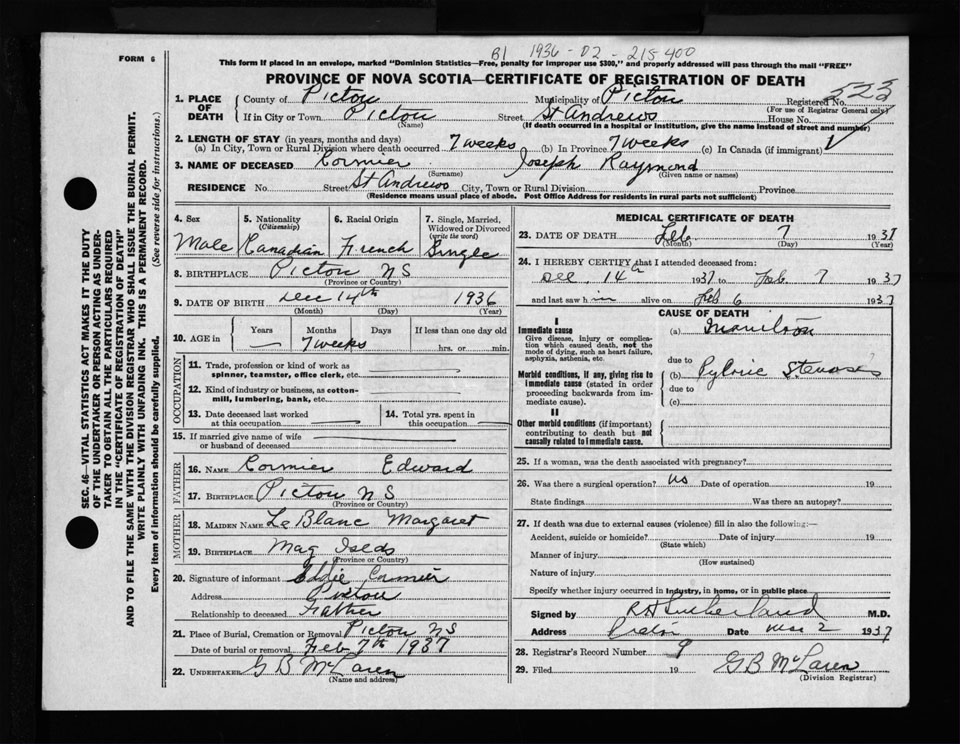 FORM 6
B1 1936 - D2 - 215400
This form if placed in an envelope, marked "Dominion Statistics—Free, penalty for improper use $300," and properly addressed will pass through the mail "FREE"
PROVINCE OF NOVA SCOTIA—CERTIFICATE OF REGISTRATION OF DEATH
1. PLACE OF DEATH County of Pictou Municipality of Pictou Registered No. 523
(For use of Registrar General only)
If in City or Town Pictou Street St Andrews House No.
(Name) (If death occurred in a hospital or institution, give the name instead of street and number)
2. LENGTH OF STAY (in years, months and days)
(a) In City, Town or Rural Division where death occurred 7 weeks (b) In Province 7 weeks (c) In Canada (if immigrant)
3. NAME OF DECEASED Cormier Joseph Raymond
(Surname) (Given name or names)
RESIDENCE No. Street St Andrews City, Town or Rural Division Province
(Residence means usual place of abode. Post Office Address for residents in rural parts not sufficient)
4. Sex Male
5. Nationality (Citizenship) Canadian
6. Racial Origin French
7. Single, Married, Widowed or Divorced (write the word) Single
8. BIRTHPLACE Pictou NS
(Province or Country)
9. DATE OF BIRTH Dec 14th 1936
(Month) (Day) (Year)
10. AGE in Years — Months 7 weeks Days If less than one day old hrs. or min.
OCCUPATION
11. Trade, profession or kind of work as spinner, teamster, office clerk, etc.
12. Kind of industry or business, as cotton-mill, lumbering, bank, etc.
13. Date deceased last worked at this occupation
14. Total yrs. spent in this occupation
15. If married give name of wife or husband of deceased
FATHER
16. NAME Cormier Edward
17. BIRTHPLACE Pictou NS
(Province or Country)
MOTHER
18. MAIDEN NAME Le Blanc Margaret
19. BIRTHPLACE Mag Islds
(Province or Country)
20. Signature of informant Eddie Cormier
Address Pictou
Relationship to deceased Father
21. Place of Burial, Cremation or Removal Pictou NS
Date of burial or removal Feb 7th 1937
22. UNDERTAKER G B McLaren
(Name and address)
MEDICAL CERTIFICATE OF DEATH
23. DATE OF DEATH Feb 7 1937
(Month) (Day) (Year)
24. I HEREBY CERTIFY that I attended deceased from:
Dec. 14th 1937 to Feb. 7 1937
and last saw him alive on Feb 6 1937
CAUSE OF DEATH
I
Immediate cause
Give disease, injury or complication which caused death, not the mode of dying, such as heart failure, asphyxia, asthenia, etc.
(a)
due to
Morbid conditions, if any, giving rise to immediate cause (stated in order proceeding backwards from immediate cause).
(b) Pyloric Stenosis ?
due to
(c)
II
Other morbid conditions (if important) contributing to death but not causally related to immediate cause.
25. If a woman, was the death associated with pregnancy?
26. Was there a surgical operation? no Date of operation 19
State findings Was there an autopsy?
27. If death was due to external causes (violence) fill in also the following:—
Accident, suicide or homicide? Date of injury 19
(State which)
Manner of injury
(How sustained)
Nature of injury
Specify whether injury occurred in Industry, in home, or in public place
Signed by R H Sutherland M.D.
Address Pictou Date Mar 2 1937
28. Registrar's Record Number 9
29. Filed 19 G B McLaren
(Division Registrar)
SEC. 46—VITAL STATISTICS ACT MAKES IT THE DUTY
OF THE UNDERTAKER OR PERSON ACTING AS UNDER-
TAKER TO OBTAIN ALL THE PARTICULARS REQUIRED
IN THE "CERTIFICATE OF REGISTRATION OF DEATH"
AND TO FILE THE SAME WITH THE DIVISION REGISTRAR WHO SHALL ISSUE THE BURIAL PERMIT.
WRITE PLAINLY WITH UNFADING INK. THIS IS A PERMANENT RECORD.
Every item of information should be carefully supplied. (See reverse side for instructions.)